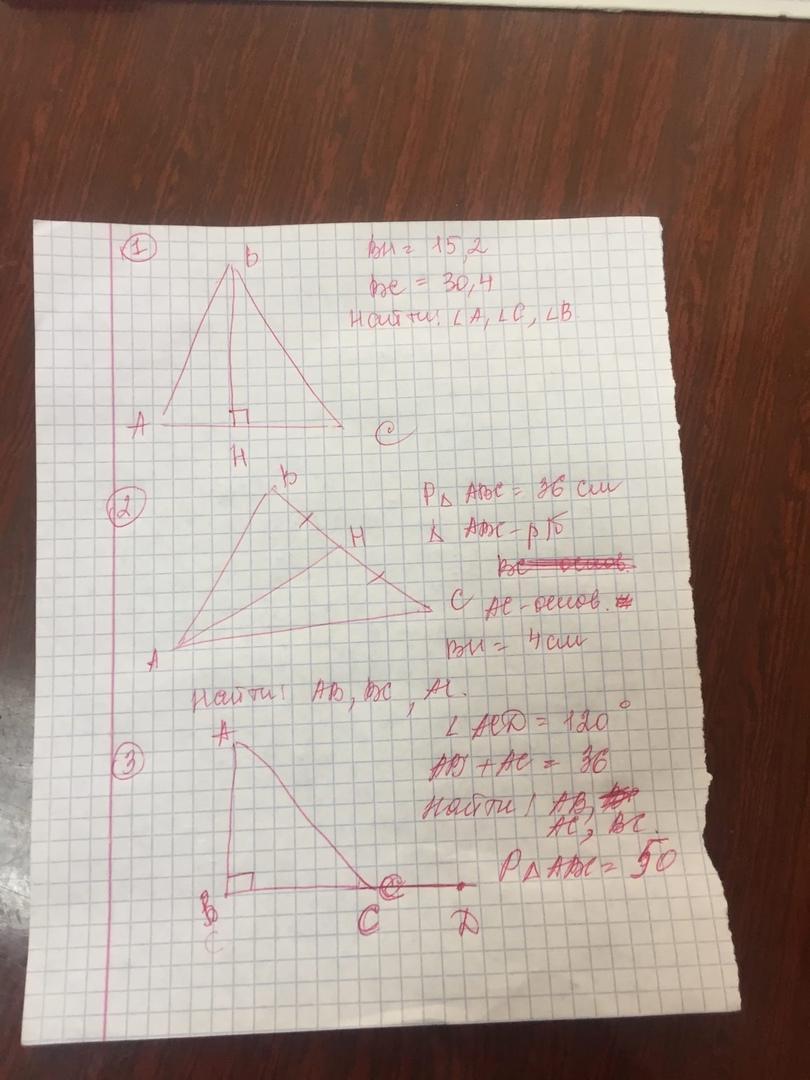 1
B
BH = 15,2
BC = 30,4
Найти: ∠A, ∠C, ∠B
A
C
H
2
B
P△ ABC = 36 см
H
△ ABC - р/б
BC основ.
C
AC - основ.
A
BH = 4 см
Найти: AB, BC, AC.
∠ ACD = 120°
A
3
AB + AC = 36
Найти: AB,
AC, BC.
P△ ABC = 50
B
C
C
C
D